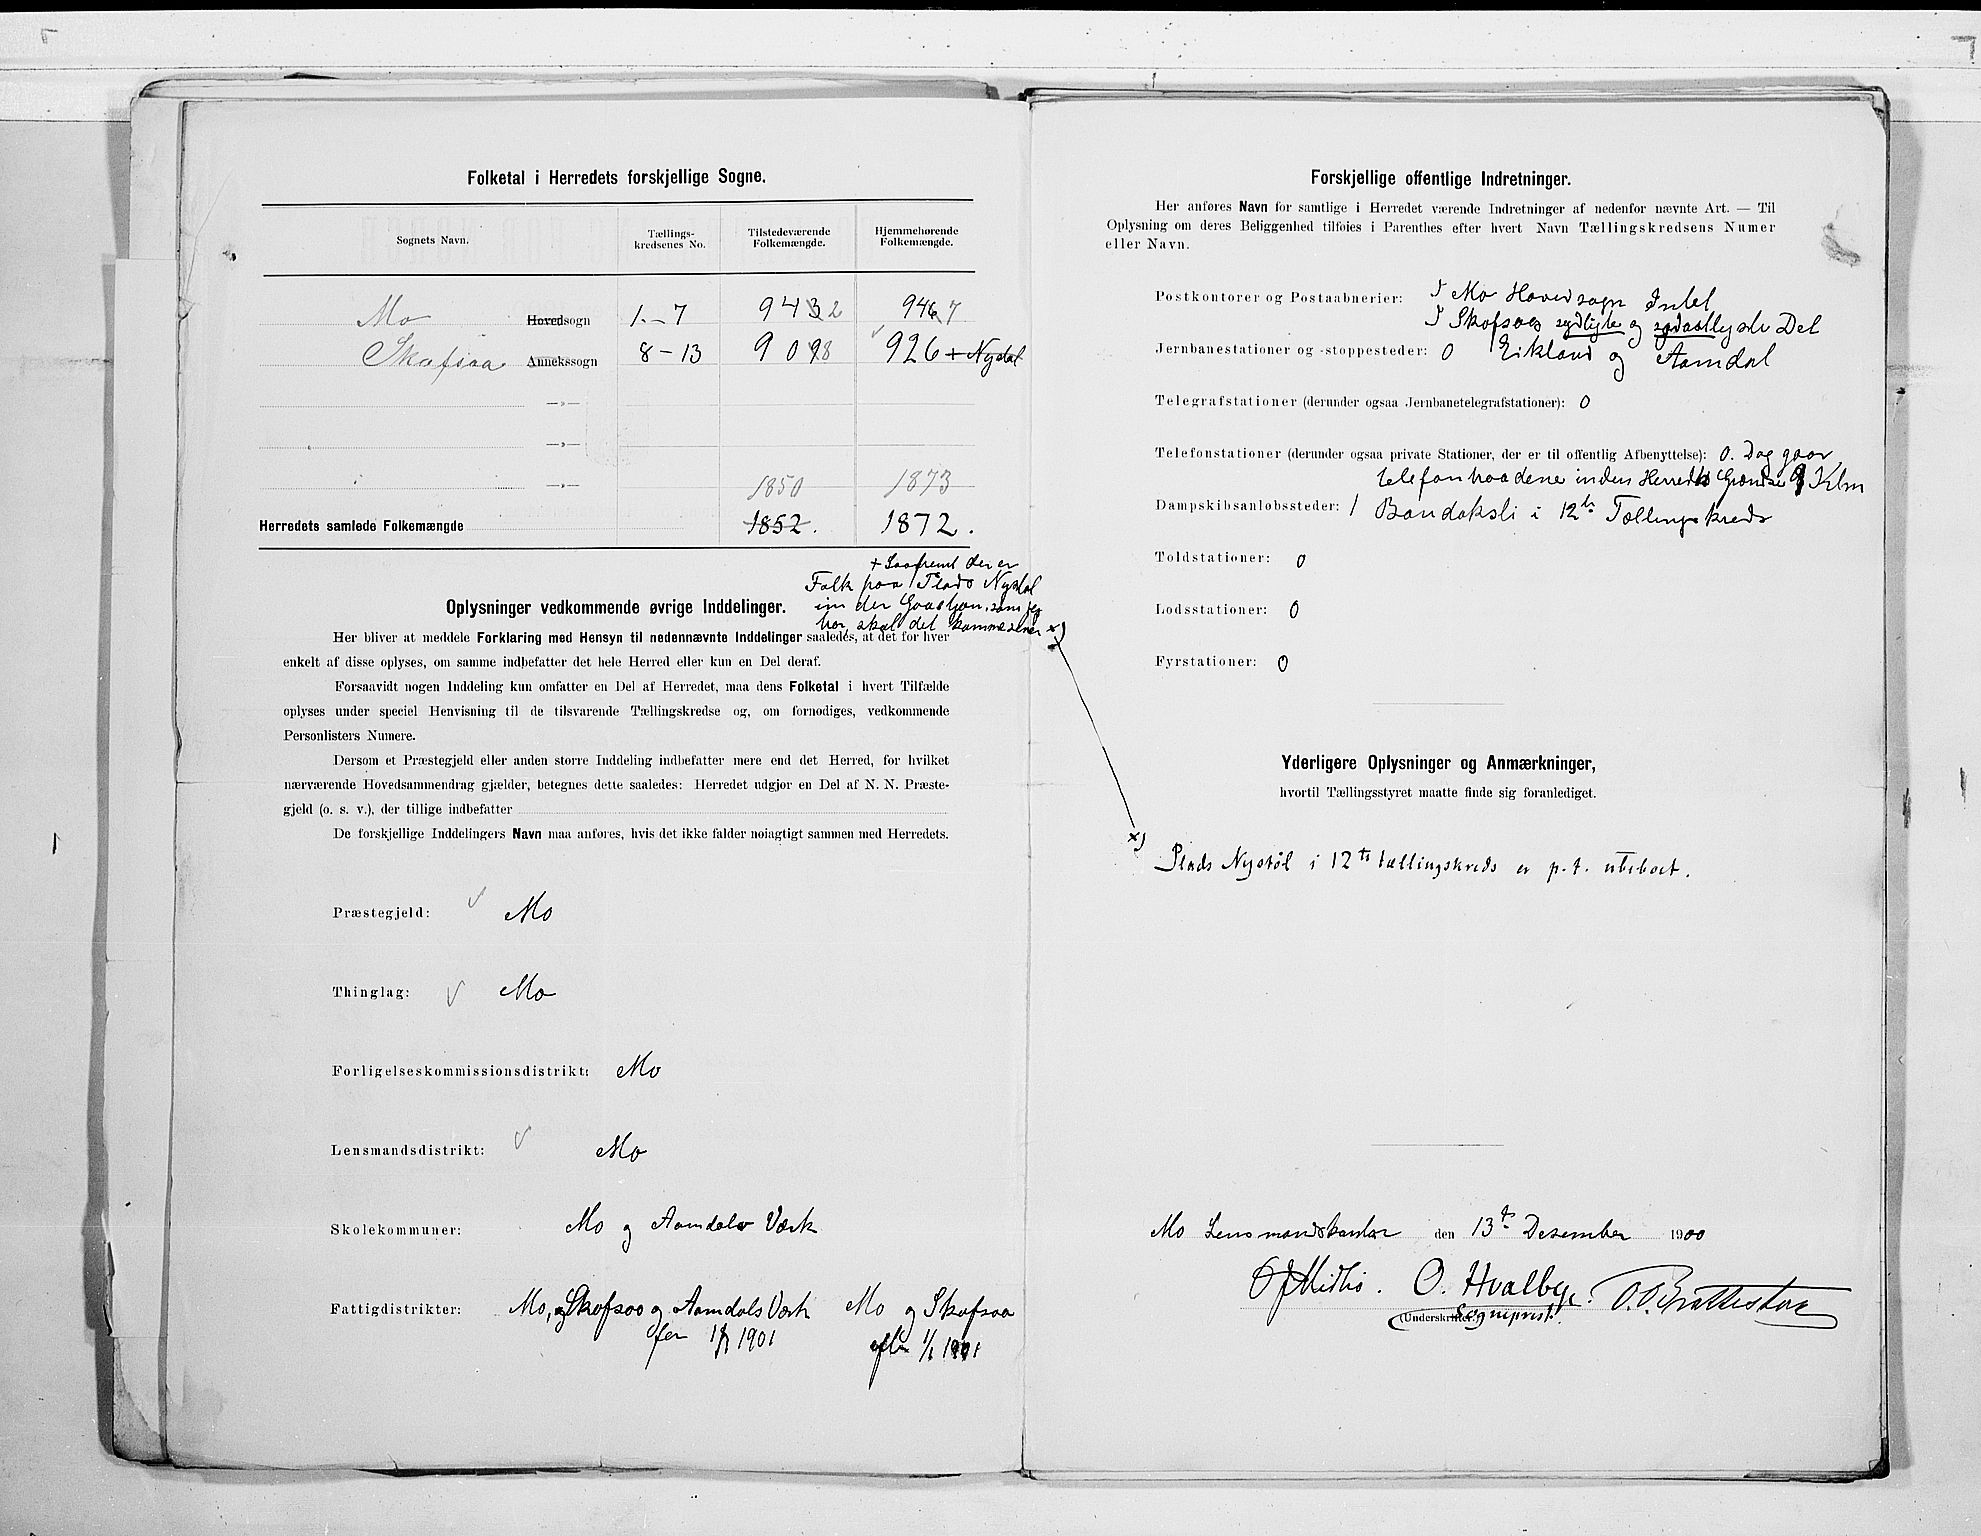 Folketal i Herredets forskjellige Sogne.
Sognets Navn. Tællings-kredsenes No. Tilstedeværende Folkemængde. Hjemmehørende Folkemængde.
Mo Hovedsogn 1.-7 9432 9467
Skafsaa Annekssogn 8-13 9098 926 + Nydal
—»—
—»—
—»— 1850 1873
Herredets samlede Folkemængde 1852. 1872.
+ Saafremt der er
Folk paa Plads
som jeg
skal det
Oplysninger vedkommende øvrige Inddelinger.
Her bliver at meddele Forklaring med Hensyn til nedennævnte Inddelinger saaledes, at det for hver
enkelt af disse oplyses, om samme indbefatter det hele Herred eller kun en Del deraf.
Forsaavidt nogen Inddeling kun omfatter en Del af Herredet, maa dens Folketal i hvert Tilfælde
oplyses under speciel Henvisning til de tilsvarende Tællingskredse og, om fornødiges, vedkommende
Personlisters Numere.
Dersom et Præstegjeld eller anden større Inddeling indbefatter mere end det Herred, for hvilket
nærværende Hovedsammendrag gjælder, betegnes dette saaledes: Herredet udgjør en Del af N. N. Præste-
gjeld (o. s. v.), der tillige indbefatter
De forskjellige Inddelingers Navn maa anføres, hvis det ikke falder nøiagtigt sammen med Herredets.
Præstegjeld: Mo
Thinglag: Mo
Forligelseskommissionsdistrikt: Mo
Lensmandsdistrikt: Mo
Skolekommuner: Mo og Aamdals Værk
Fattigdistrikter: Mo, Skafsaa og Aamdals Værk Mo og Skafsaa
før 1/1 1901 efter 1/1 1901
Forskjellige offentlige Indretninger.
Her anføres Navn for samtlige i Herredet værende Indretninger af nedenfor nævnte Art. — Til
Oplysning om deres Beliggenhed tilføies i Parenthes efter hvert Navn Tællingskredsens Numer
eller Navn.
Postkontorer og Postaabnerier: I Mo Hovedsogn Intet
I Skafsaas sydligste og sydøstligste Del
Jernbanestationer og -stoppesteder: 0 Eikland og Aamdal
Telegrafstationer (derunder ogsaa Jernbanetelegrafstationer): 0
Telefonstationer (derunder ogsaa private Stationer, der er til offentlig Afbenyttelse): 0. Dog gaar
telefontraadene inden Herredets Grændse 9 Klm
Dampskibsanløbssteder: 1 Bandaksli i 12te Tællingskreds
Toldstationer: 0
Lodsstationer: 0
Fyrstationer: 0
Yderligere Oplysninger og Anmærkninger,
hvortil Tællingsstyret maatte finde sig foranlediget.
x) Plads Nystøl i 12te tællingskreds er p. t. ubeboet.
Mo Lensmandskontor den 13de Desember 1900
O. Hvalbye.
(Underskrifter.) Sogneprest.